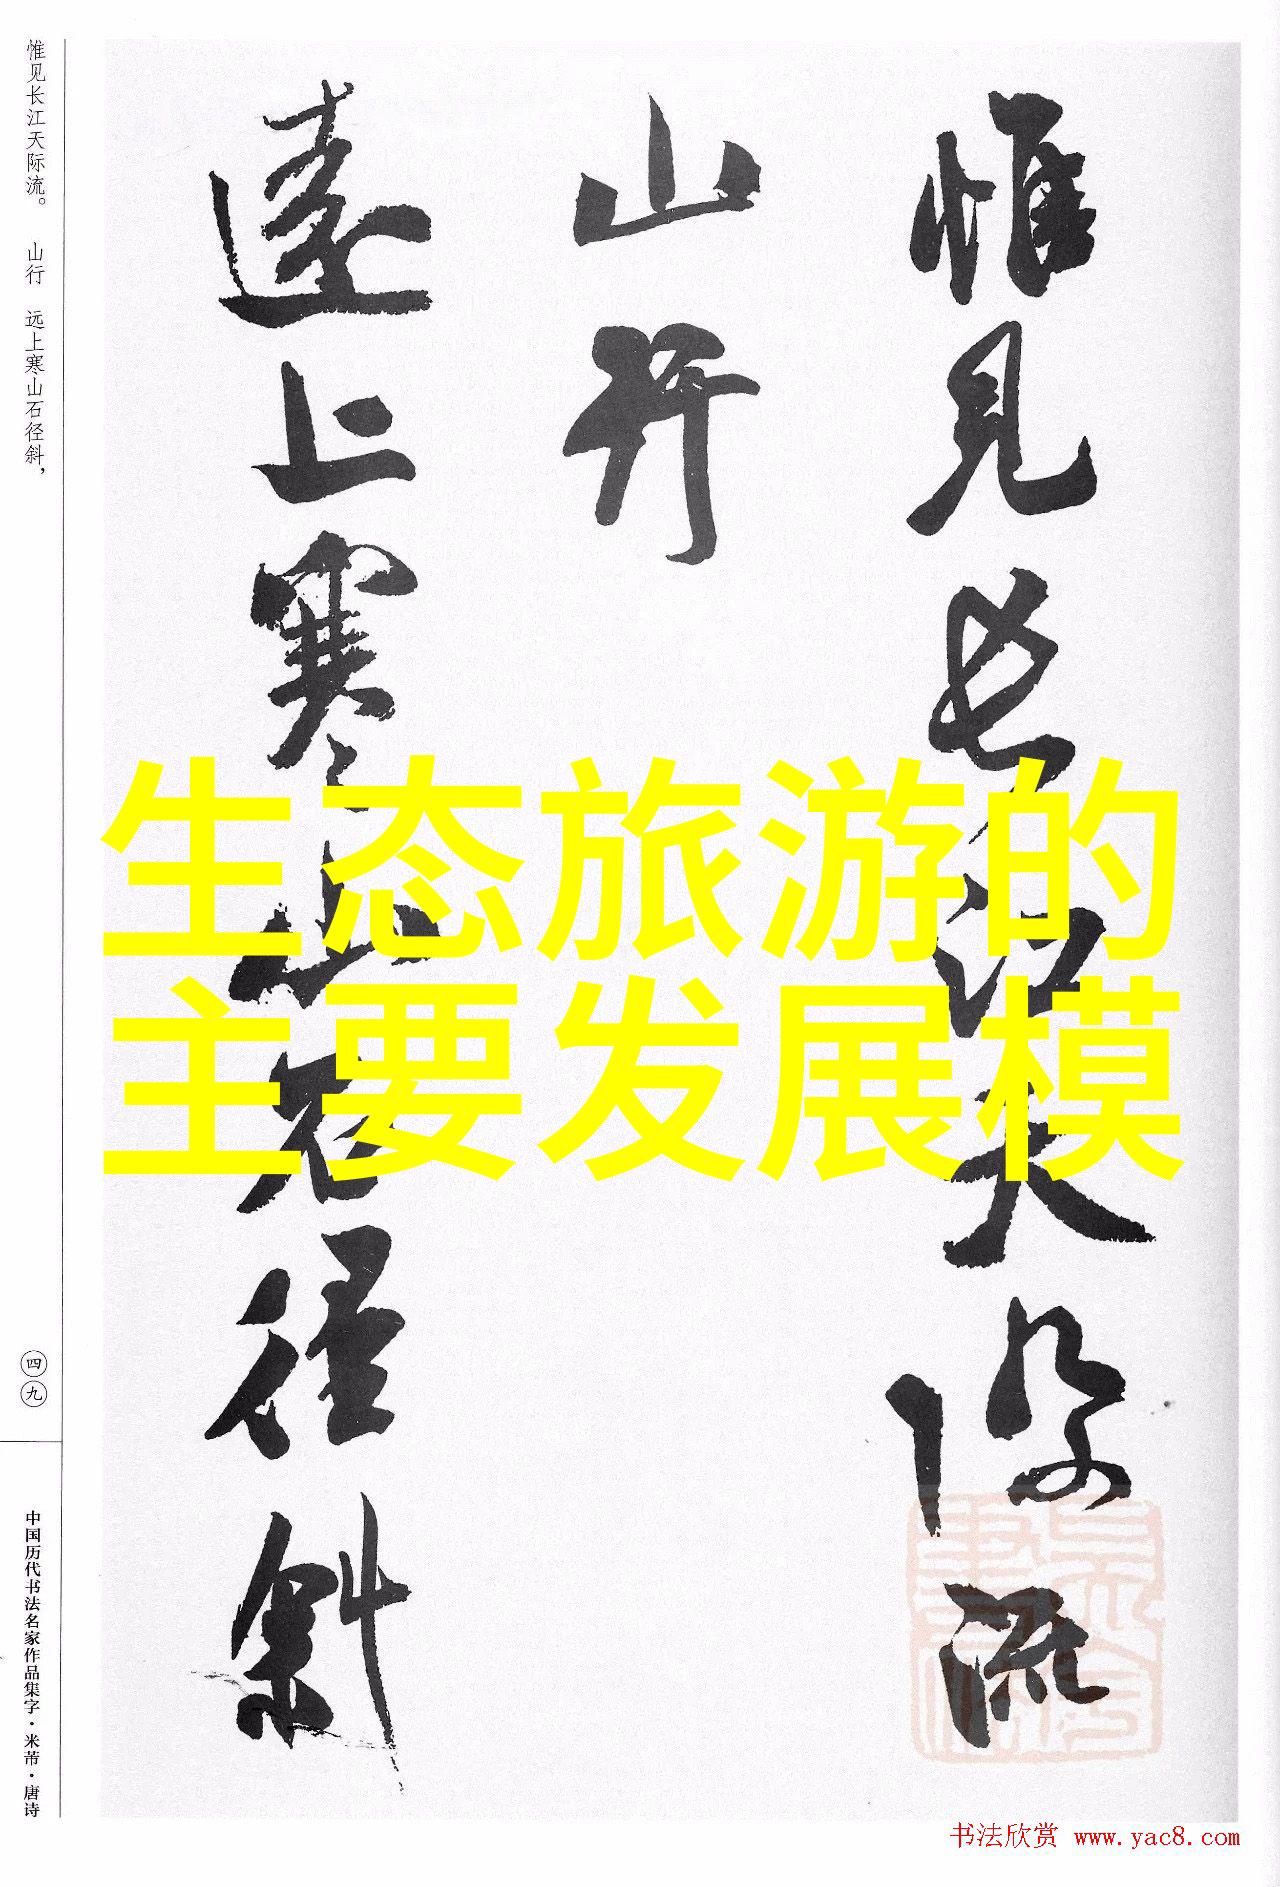 惟见长江天际流
山行
遠上寒山石径斜
生态旅游的
主要发展模
惟见长江天际流。 山行 远上寒山石径斜，
四九
中国历代书法名家作品集字·米芾·唐诗
书法欣赏 www.yac8.com